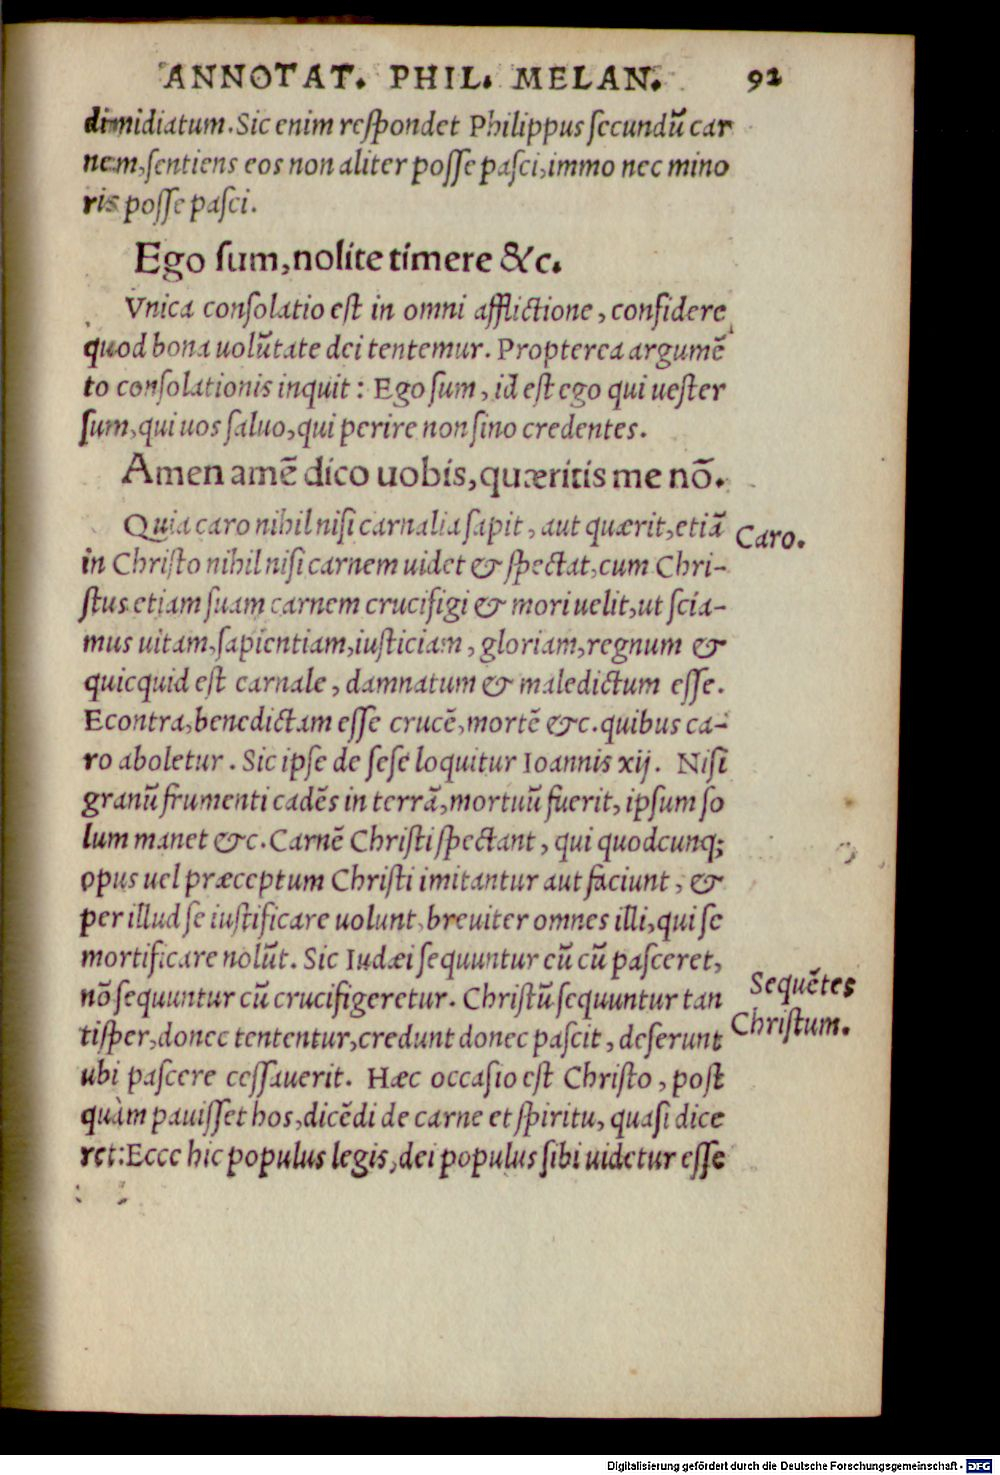 ANNOTAT. PHIL. MELAN. 92
dimidiatum. Sic enim reſpondet Philippus ſecundũ car
nem, ſentiens eos non aliter poſſe paſci, immo nec mino
ris poſſe paſci.
Ego ſum, nolite timere &c.
Vnica conſolatio eſt in omni afflictione, confidere
quod bona uolũtate dei tentemur. Propterea argumẽ
to conſolationis inquit: Ego ſum, id eſt ego qui ueſter
ſum, qui uos ſaluo, qui perire non ſino credentes.
Amen amẽ dico uobis, quæritis me nõ.
Quia caro nihil niſi carnalia ſapit, aut quærit, etiã
Caro.
in Chriſto nihil niſi carnem uidet & ſpectat, cum Chri-
ſtus etiam ſuam carnem crucifigi & mori uelit, ut ſcia-
mus uitam, ſapientiam, iuſticiam, gloriam, regnum &
quicquid eſt carnale, damnatum & maledictum eſſe.
Econtra, benedictam eſſe crucẽ, mortẽ &c. quibus ca-
ro aboletur. Sic ipſe de ſeſe loquitur Ioannis xij. Niſi
granũ frumenti cadẽs in terrã, mortuũ fuerit, ipſum ſo
lum manet &c. Carnẽ Chriſti ſpectant, qui quodcunq;
opus uel præceptum Chriſti imitantur aut faciunt, &
per illud ſe iuſtificare uolunt, breuiter omnes illi, qui ſe
mortificare nolũt. Sic Iudæi ſequuntur cũ cũ paſceret,
nõ ſequuntur cũ crucifigeretur. Chriſtũ ſequuntur tan
Sequẽtes
Chriſtum.
tiſper, donec tententur, credunt donec paſcit, deſerunt
ubi paſcere ceſſauerit. Hæc occaſio eſt Chriſto, poſt
quàm pauiſſet hos, dicẽdi de carne et ſpiritu, quaſi dice
ret: Ecce hic populus legis, dei populus ſibi uidetur eſſe
Digitalisierung gefördert durch die Deutsche Forschungsgemeinschaft - DFG